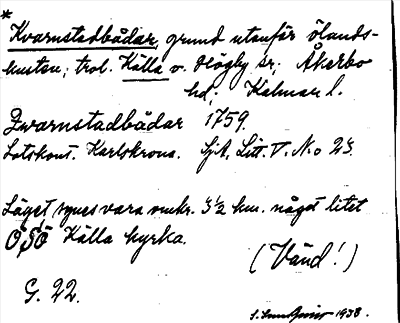 *
Kvarnstadbådar, grund utanför ölands-
kusten; trol. Källa o. Högby sr; Åkerbo
hd; Kalmar l.
Zwarnstadbådar 1759.
Lotskont. Karlskrona. SjA, Litt. V. No 23.
Läget synes vara omkr. 3½ km. något litet
OSO Källa kyrka.
(Vänd!)
G. 22.
1938.